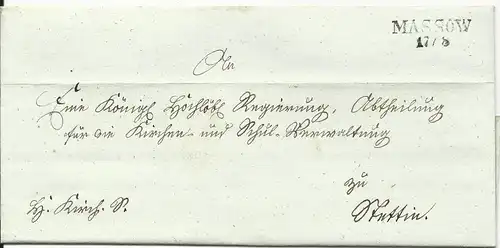 MASSOW
17/8
An
Eine Königl Hochlöbl Regierung, Abtheilung
für die Kirchen- und Schul-Verwaltung
zu
H. Kirch. S.
Stettin.